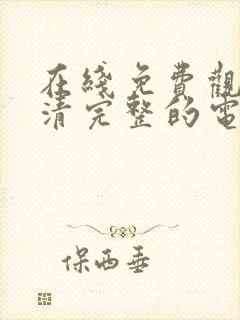 在綫免費觀
清完整的電
保西垂